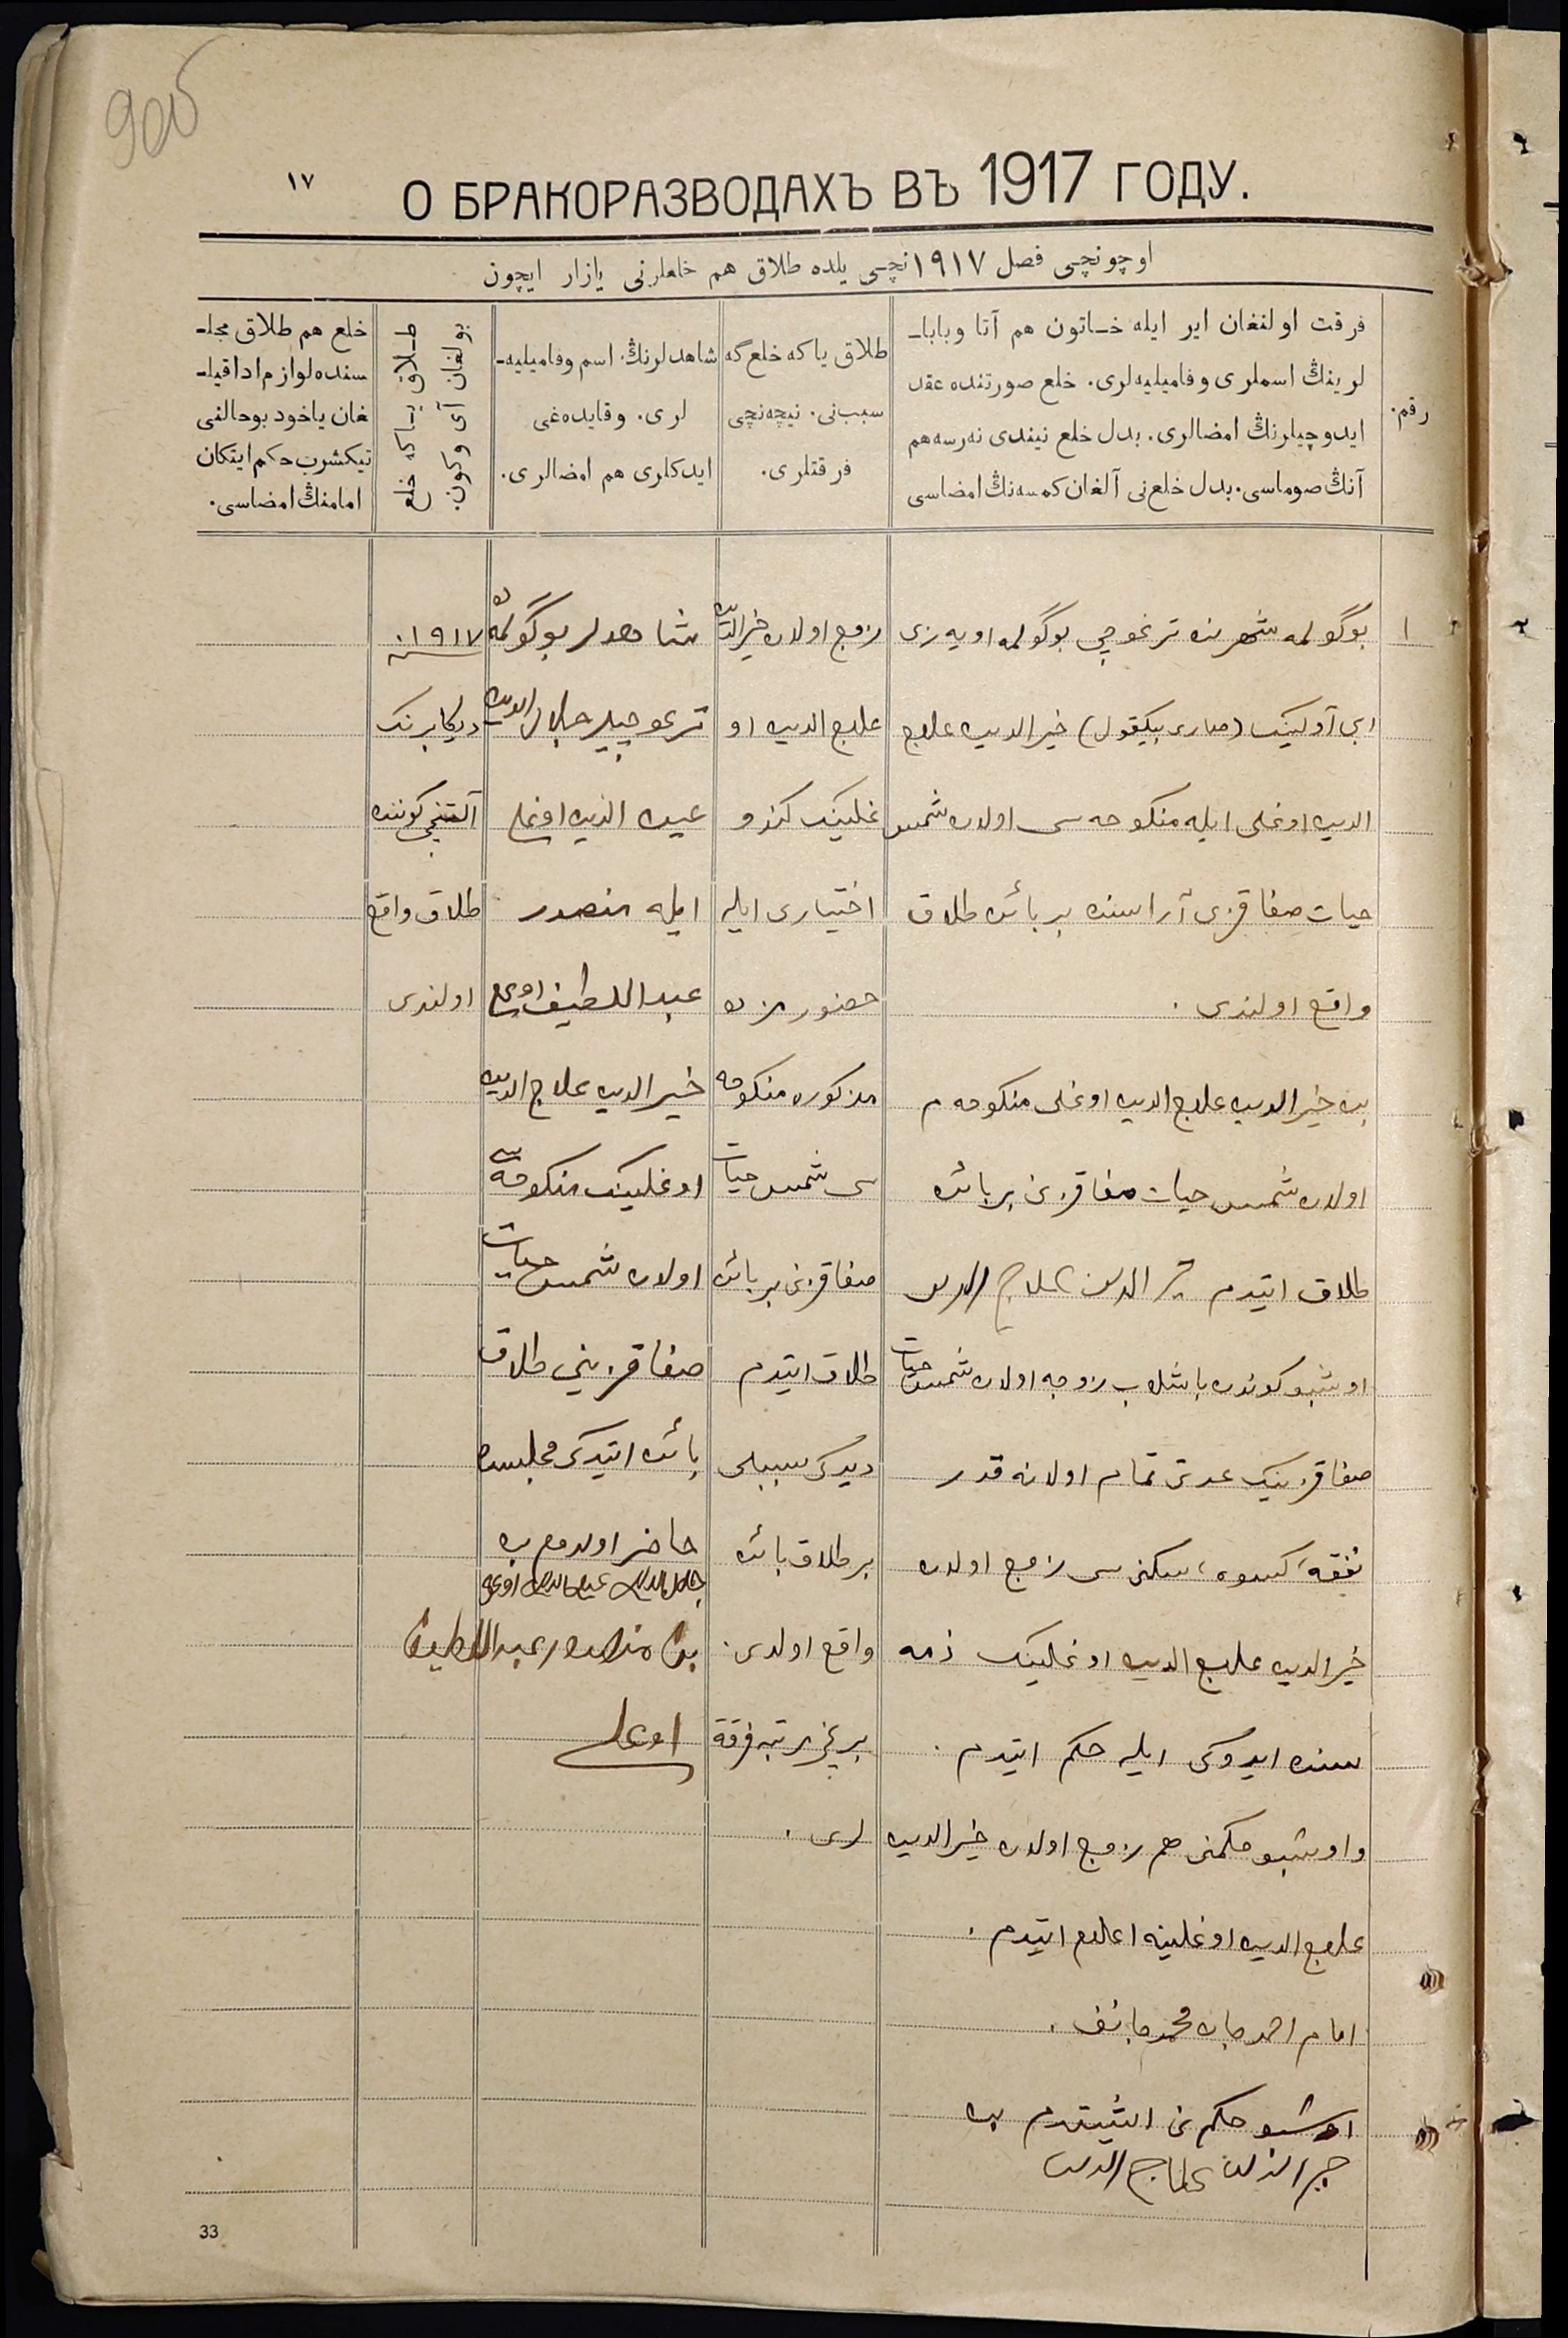 906
١٧
О БРАКОРАЗВОДАХЪ ВЪ 1917 ГОДУ.
اوچونچی فصل ١٩١٧ نچی یلده طلاق هم خلعلرنی یازار ایچون
رقم.
فرقت اولنغان ایر ایله خاتون هم آتا وبابا۔
لرینڭ اسملری وفامیلیه‌لری. خلع صورتنده عقد
ایدوچیلرنڭ امضالری. بدل خلع نیندی نه‌رسه هم
آنڭ صوماسی. بدل خلع‌نی آلغان کمسه‌نڭ امضاسی
طلاق یاکه خلع‌گه
سبب‌نی. نیچه‌نچی
فرقتلری.
شاهدلرنڭ اسم وفامیلیه۔
لری. وقایده‌غی
ایدکلری هم امضالری.
طلاق یاکه خلع
بولغان آی وکون.
خلع هم طلاق مجلـ
سنده لوازم ادا قیلـ
غان یاخود بوحالنی
تیکشرب حکم ایتکان
امامنڭ امضاسی.
١
بوگولمه شهرنده ترغوچی بوگولمه اویه‌زی
ابی آولینک خیرالدین علاج
الدین اوغلی ایله منکوحه سی اولان شمس
حیات صفا قزی آراسنده بر بائن طلاق
واقع اولندی.
بن خیرالدین علاج الدین اوغلی منکوحه م
اولان شمس حیات صفا قزنی بر بائن
طلاق ایتدم خیر الدین علاج الدین
اوشبو کوندن باشلاب زوجه اولان شمس حیات
صفا قزینک عدتی تمام اولانه قدر
نفقه، کسوه، سکنی سی زوج اولان
خیرالدین علاج الدین اوغلینک ذمه
سنده ایدوکی ایله حکم ایتدم.
واوشبو حکمنی هم زوج اولان خیرالدین
علاج الدین اوغلینه اعلام ایتدم.
امام احمدجان محمدجانف.
اوشبو حکم نی ایشیتدم بن
خیرالدین علاج الدین
زوج اولان خیرالدین
علاج الدین او
غلینک کندو
اختیاری ایله
حضورمزده
مذکوره منکوحه
سی شمس حیات
صفا قزنی بر بائن
طلاق ایتدم
دیدکی سببلی
بر طلاق بائن
واقع اولدی.
برنچی مرتبه فرقة
لری.
شاهدلر بوگولمه ده
ترغوچیلر جلال الدین
عین الدین اوغلی
ایله منصور
عبداللطیف اوغلی
خیرالدین علاج الدین
اوغلینک منکوحه سی
اولان شمس حیات
صفا قزینی طلاق
بائن ایتدکی مجلسده
حاضر اولدم بن
جلال الدین عین الدین اوغلی
بن منصور عبداللطیف
اوغلی
١٩١٧.
دیکابرنک
آلتنچی کوننده
طلاق واقع
اولندی
33